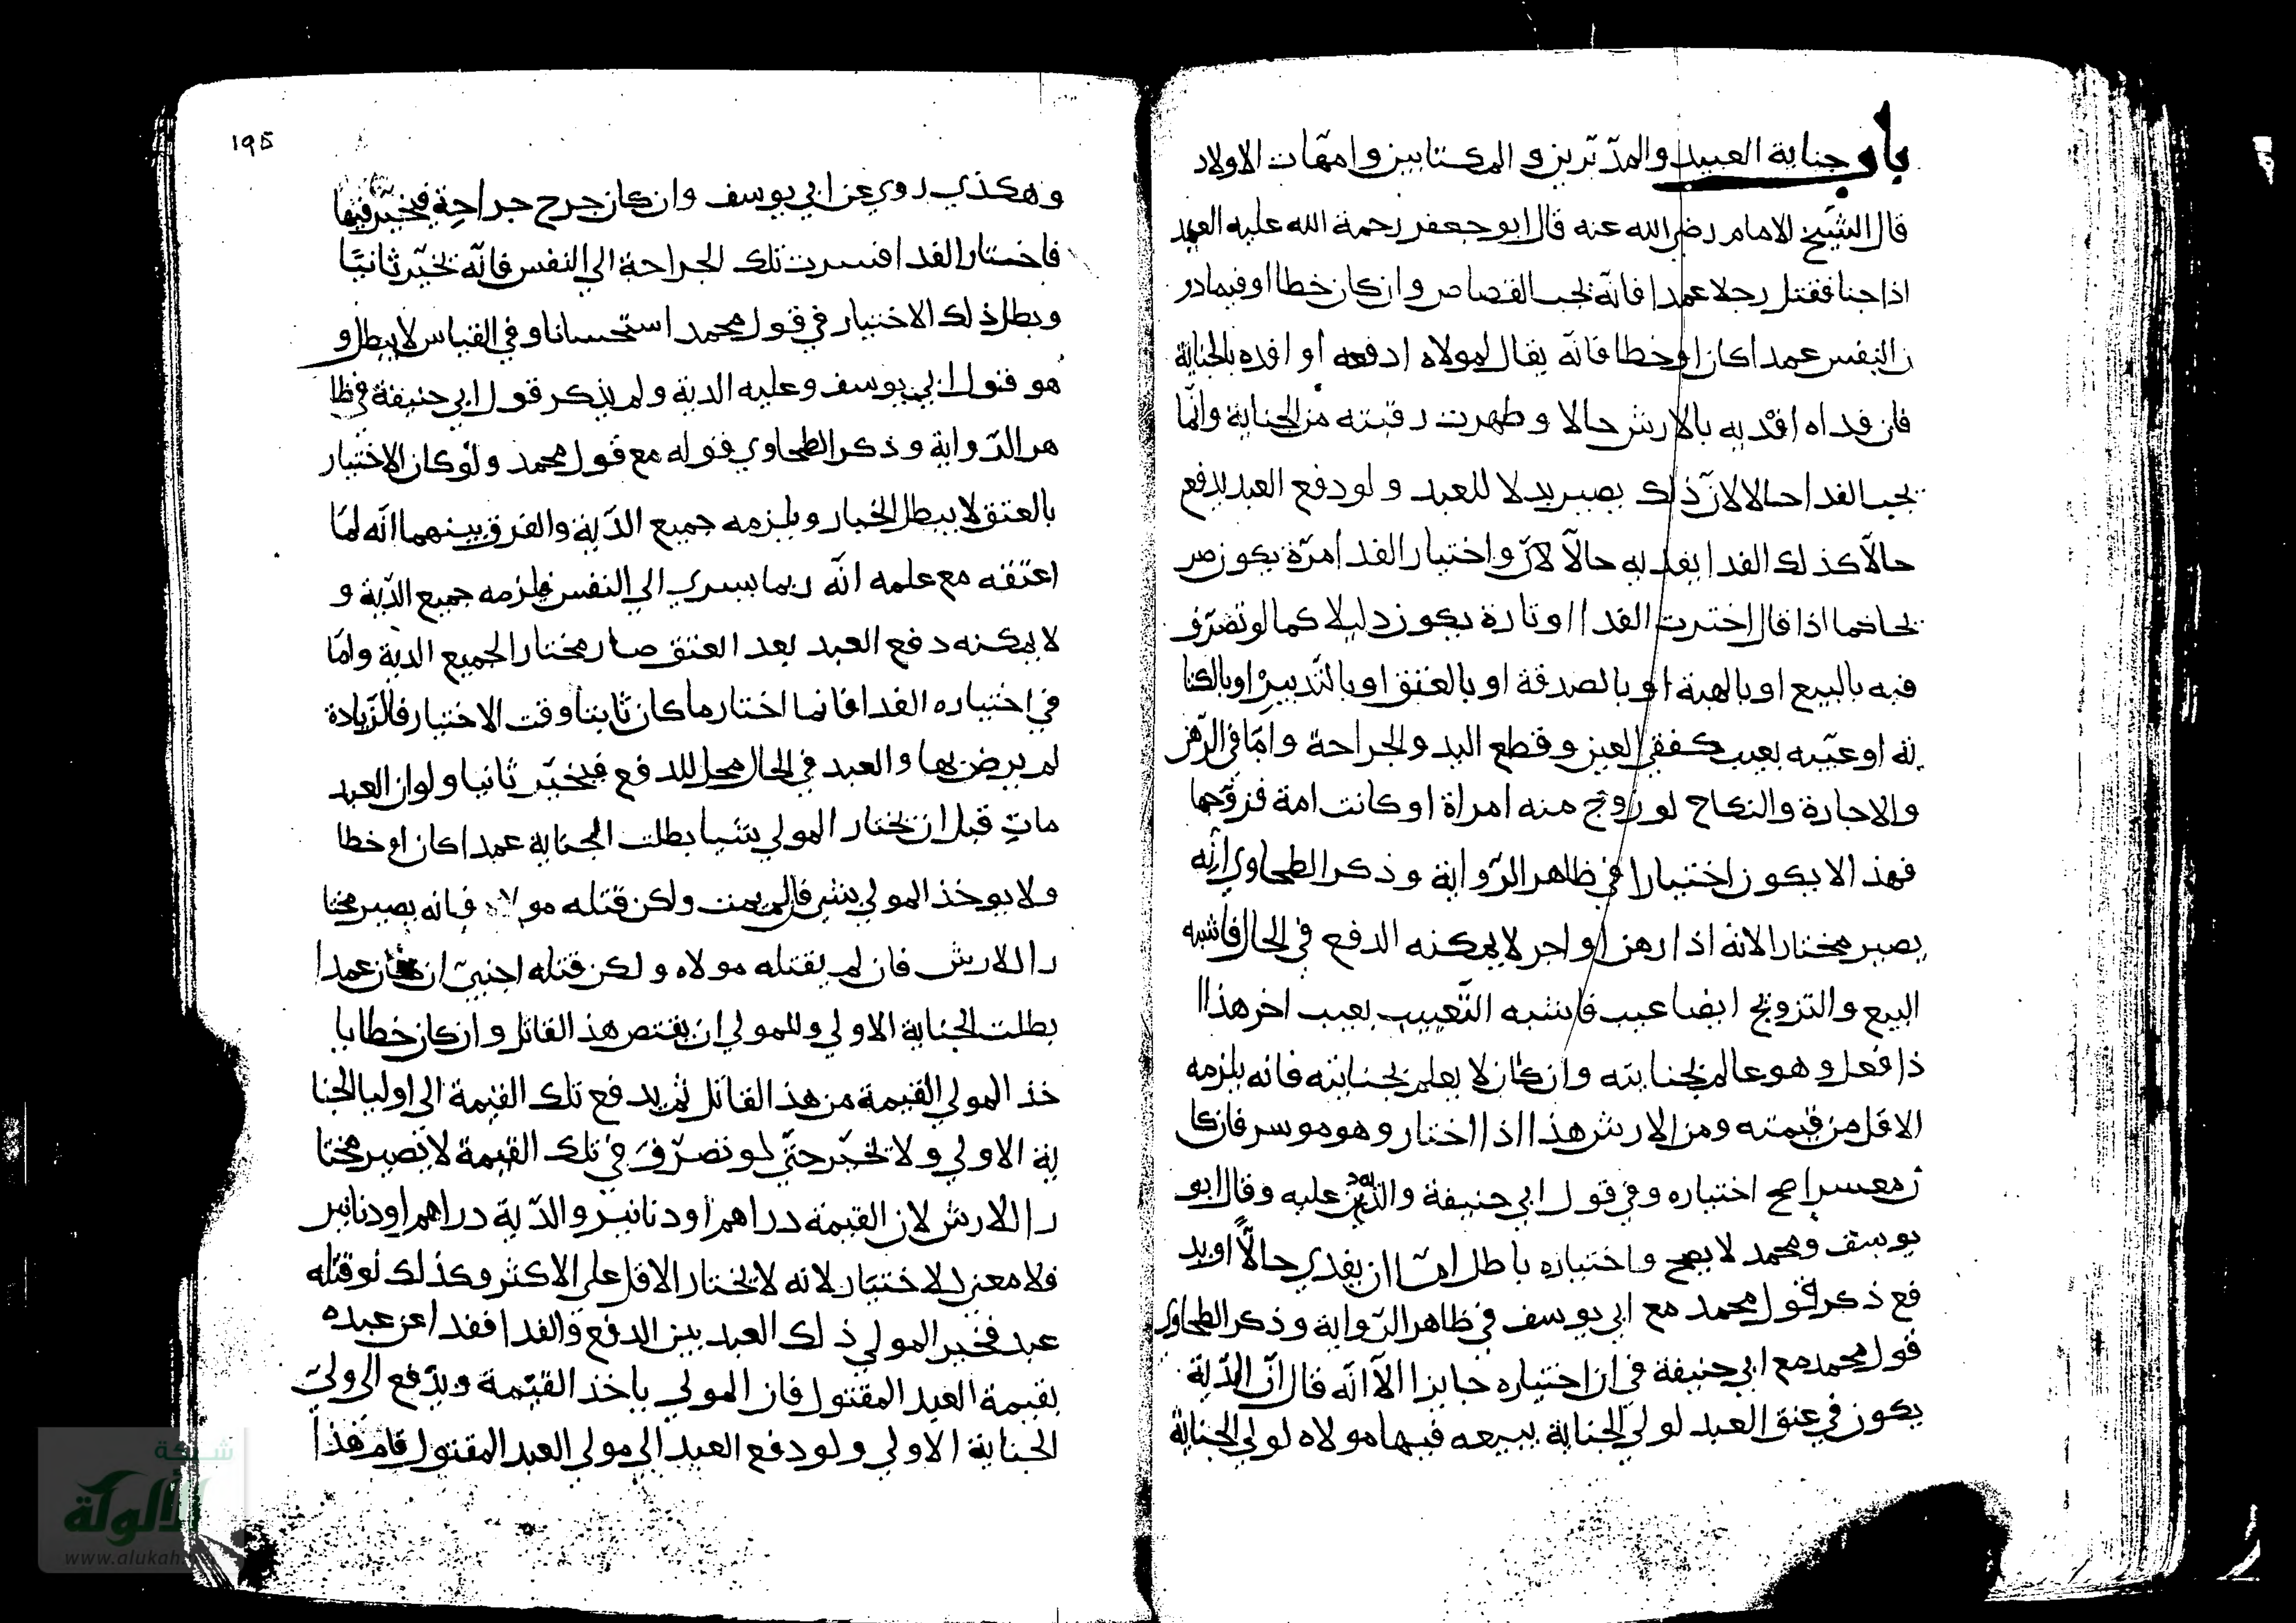 باب جناية العبيد والمدبرين و المكتابين وامهات الاولاد
قال الشيخ الامام رضي الله عنه قال ابو جعفر رحمة الله عليه العبد
اذا جنا فقتل رجلا عمدا فانه يجب القصاص وان كان خطا او فيما دو
ن النفس عمدا كان او خطا فانه يقال لمولاه ادفعه او افده بالجناية
فان فداه افديه بالارش حالا و طهرت رقبته من الجناية وانما
يجب الفدا حالا لان ذلك يصير بدلا للعبد و لو دفع العبد يدفع
حالا كذلك الفدا يفديه حالا لان واختيار الفدا مرة يكون صر
يحا كما اذا قال اخترت الفدا او تارة يكون دليلا كما لو تصرف
فيه بالبيع او بالهبة او بالصدقة او بالعتق او بالتدبير او بالكتا
بة او عيبه بعيب كفقي العين و قطع اليد والجراحة واما في الرهن
والاجارة والنكاح لو زوج منه امراة او كانت امة فزوجها
فهذا لا يكون اختيارا في ظاهر الرواية و ذكر الطحاوي انه
يصير مختارا لانه اذا رهن او اجر لا يمكنه الدفع في الحال فاشبه
البيع والتزويج ايضا عيب فاشبه التعييب بعيب اخر هذا ا
ذا فعل و هو عالم بجنايته وان كان لا يعلم بجنايته فانه يلزمه
الاقل من قيمته ومن الارش هذا اذا اختار و هو موسر فان كا
ن معسرا صح اختياره و في قول ابي حنيفة والدين عليه وقال ابو
يوسف ومحمد لا يصح واختياره باطل اما ان يفدي حالا او يد
فع ذكر قول محمد مع ابي يوسف في ظاهر الرواية و ذكر الطحاوي
قول محمد مع ابي حنيفة في ان اختياره جايزا الا انه قال ان الدية
يكون في عنق العبد لولي الجناية يبيعه فيها مولاه لولي الجناية
١٩٥
و هكذي روي عن ابي يوسف وان كان جرح جراحة فيخير فيها
فاختار الفدا فسرت تلك الجراحة الي النفس فانه يخير ثانيا
و بطل ذلك الاختيار في قول محمد استحسانا و في القياس لا يبطل و
هو قول ابي يوسف و عليه الدية و لم يذكر قول ابي حنيفة في ظا
هر الرواية و ذكر الطحاوي قوله مع قول محمد و لو كان الاختيار
بالعتق لا يبطل الخيار و يلزمه جميع الدية والفرق بينهما انه لما
اعتقه مع علمه انه ربما يسري الي النفس فلزمه جميع الدية و
لا يمكنه دفع العبد بعد العتق صار مختارا لجميع الدية واما
في اختياره الفدا فانما اختار ما كان ثابتا وقت الاختيار فالزيادة
لم يرض بها والعبد في الحال محل للدفع فيخير ثانيا و لو ان العبد
مات قبل ان يختار المولي شيا بطلت الجناية عمدا كان او خطا
ولا يوخذ المولي بشي فان لم يمت ولكن قتله مولاه فانه يصير مختا
را للارش فان لم يقتله مولاه و لكن قتله اجنبي ان كان عمدا
بطلت الجناية الاولي وللمولي ان يقتص هذ القاتل وان كان خطا يا
خذ المولي القيمة من هذ القاتل ثم يدفع تلك القيمة الي اوليا الجنا
ية الاولي ولا يخير حتي لو تصرف في تلك القيمة لا يصير مختا
را للارش لان القيمة دراهم او دنانير والدية دراهم او دنانير
فلا معني للاختيار لانه لا يختار الاقل علي الاكثر وكذلك لو قتله
عبد فخير المولي ذلك العبد بين الدفع والفدا ففدا عن عبده
بقيمة العبد المقتول فان المولي ياخذ القيمة ويدفع الي ولي
الجناية الاولي و لو دفع العبد الي مولي العبد المقتول قام هذا
شبكة
الألوكة
www.alukah